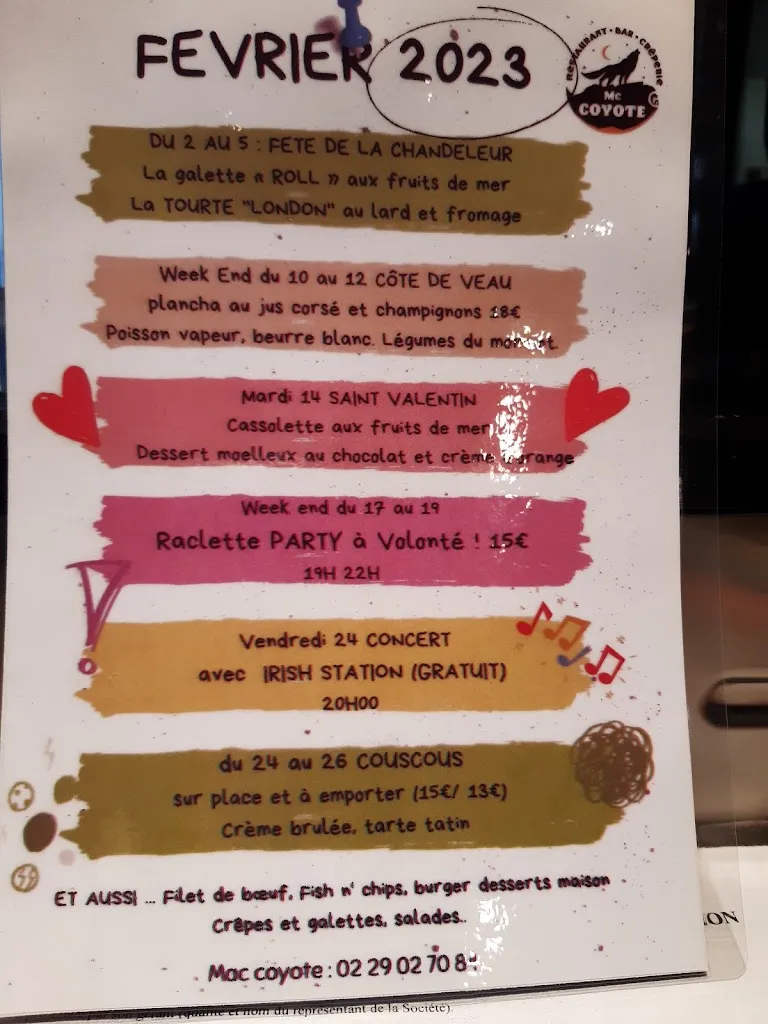 FEVRIER 2023
RESTAURANT • BAR • CRÊPERIE
Mc
COYOTE
DU 2 AU 5 : FETE DE LA CHANDELEUR
La galette « ROLL » aux fruits de mer
La TOURTE "LONDON" au lard et fromage
Week End du 10 au 12 CÔTE DE VEAU
plancha au jus corsé et champignons 18€
Poisson vapeur, beurre blanc. Légumes du
Mardi 14 SAINT VALENTIN
Cassolette aux fruits de mer
Dessert moelleux au chocolat et crème
Week end du 17 au 19
Raclette PARTY à Volonté ! 15€
19H 22H
Vendredi 24 CONCERT
avec IRISH STATION (GRATUIT)
20H00
du 24 au 26 COUSCOUS
sur place et à emporter (15€/ 13€)
Crème brulée, tarte tatin
ET AUSSI ... Filet de bœuf, Fish n' chips, burger desserts maison
Crêpes et galettes, salades..
Mac coyote : 02 29 02 70
ION
(qualité et nom du représentant de la Société)